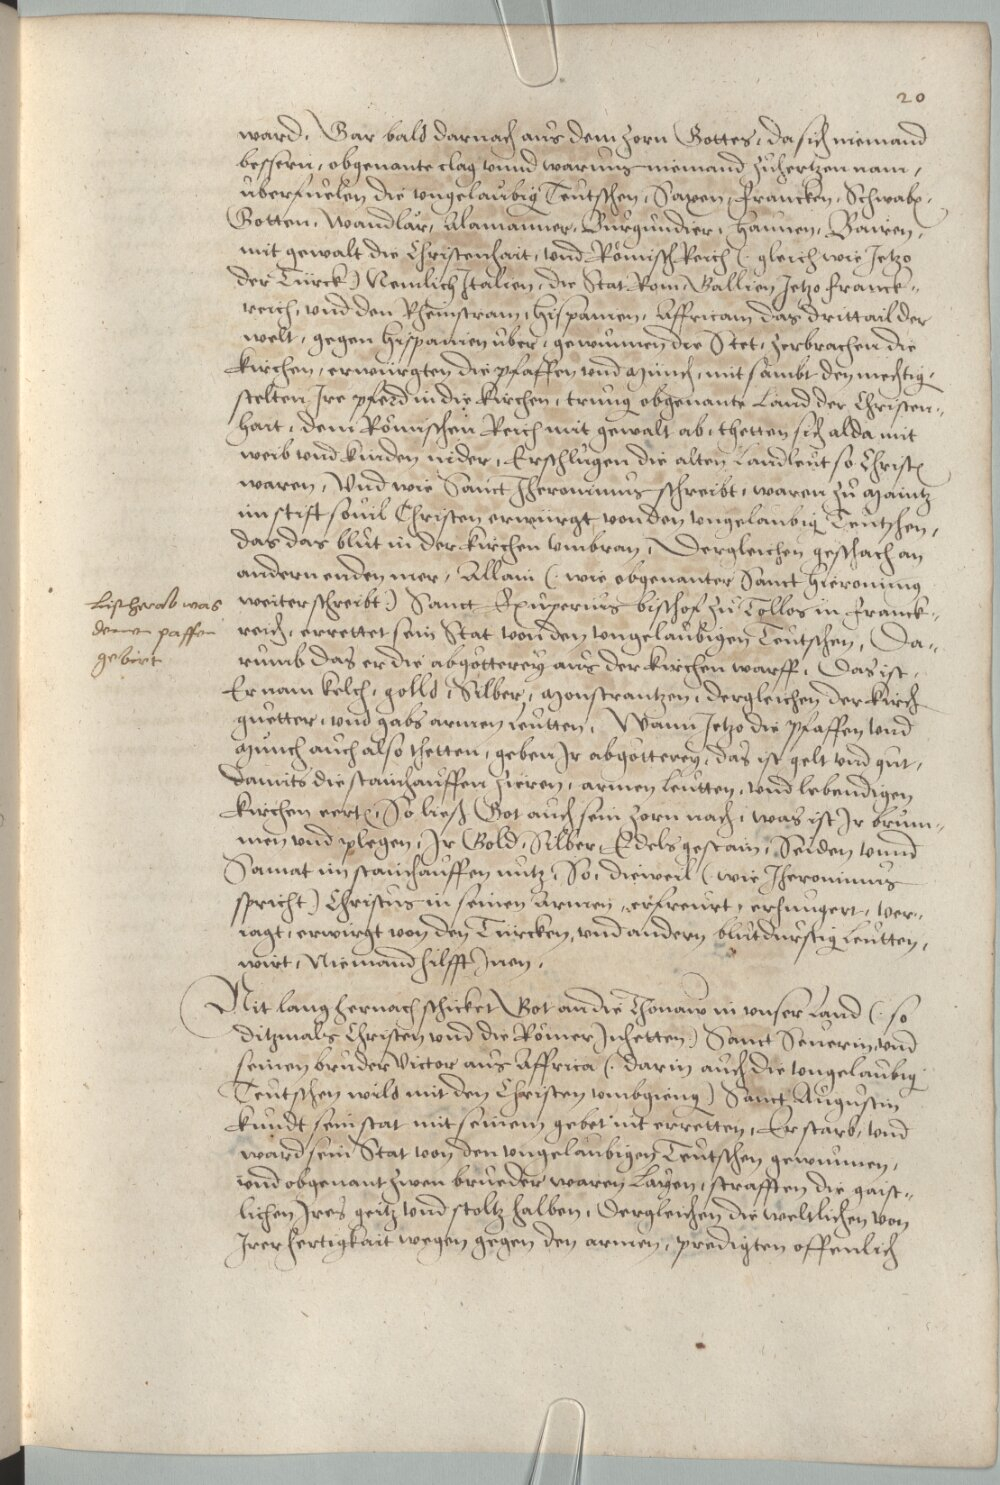 20
ward. Gar bald darnach aus dem zorn Gottes, da sich niemand
bessern, obgenante clag vnnd warnung niemand zuhertzen nam,
uberfuelen die vngelaubig Teutschen, Saxen, Francken, Schwab,
Gotten, Wandlär, Alamanner, Burgundier, Haunen, Bairen,
mit gewalt die Christenhait, vnd Römisch Reich (: gleich wie Jetzo
der Türck) Nemlich Italien, die Stat Rom, Gallien Jetzo Franck-
reich, vnd den Rheinstram, Hispanien, Affricam das drittail der
welt, gegen Hispanien uber, gewunnen die Stet, zerbrachen die
kirchen, erwurgten die pfaffen vnd Münch, mit sambt den mechtig,
stelten Jre pferd in die kirchen, trung obgenante Land der Christen-
hait, dem Römischen Reich mit gewalt ab, thetten sich alda mit
weib vnd kinden nider, Erschlugen die alten Landleut so Christ
waren, Vnd wie Sanct Jheronimus schreibt, waren zu Maintz
im stift souil Christen erwürgt von den vngelaubig Teutschen,
das das blut in der kirchen vmbran, Dergleichen geschach an
andern enden mer, Allain (: wie obgenanter Sanct Hieronimus
weiter schreibt) Sanct Exuperius bischof zu Tollos in Franck-
reich, errettet sein Stat von den vngelaubigen Teutschen, Da-
rumb das er die abgötterey aus der kirchen warff, Das ist,
Er nam kelch, golld, Silber, Monstrantzen, dergleichen der kirch
guetter, vnd gabs armen leutten, Wann Jetzo die pfaffen vnd
Münch auch also thetten, geben Jr abgötterey, das ist gelt vnd gut,
damits die stainhauffen zieren, armen leutten, vnd lebendigen
kirchen eert, So ließ Got auch sein zorn nach, was ist Jr brum-
men vnd plegen, Jr Gold, Silber, Edels gestain, Seiden vnnd
Samat im stainhauffen nutz, So, dieweil (: wie Jheronimus
spricht) Christus in seinen Armen, erfreurt, erhungert, ver-
iagt, erwürgt von den Türcken, vnd andern blutdurstig leutten,
wirt, Niemand hilfft Jnen,
Lis herab was
denen paffen
gebirt
Nit lang hernach schicket Got an die Thonaw in vnser Land (: so
ditzmals Christen vnd die Römer Jnhetten) Sanct Seuerin, vnd
seinen bruder Victor aus Affrica (: darin auch die vngelaubig
Teutschen wild mit den Christen vmbgieng) Sanct Augustin
kundt sein stat mit seinem gebet nit erretten, Er starb, vnd
ward sein Stat von den vngelaubigen Teutschen gewunnen,
vnd obgenant zwen brueder waren Layen, strafften die gaist-
lichen Jres geitz vnd stoltz halben, Dergleichen die weltlichen von
Jrer hertigkait wegen gegen den armen, predigten offenlich